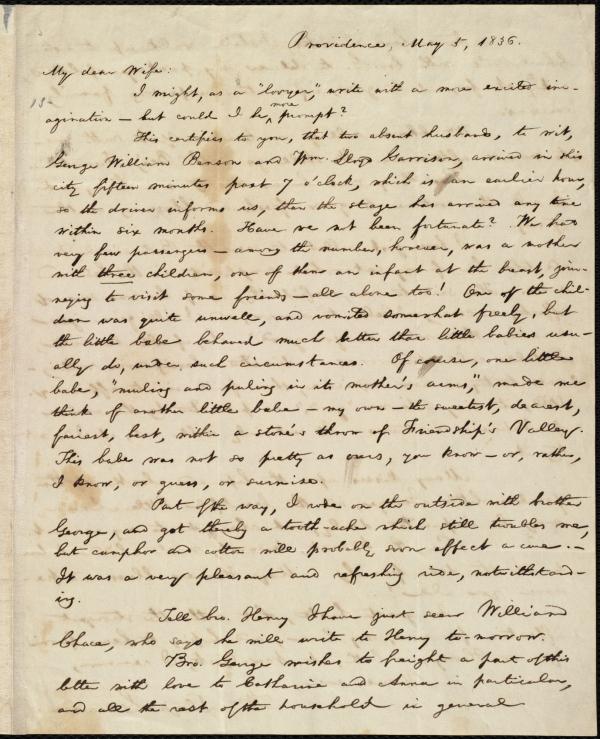 Providence, May 5, 1836.
My dear Wife:
I might, as a "lovyer," write with a more excited im-
agination — but could I be more prompt?
This certifies to you, that two absent husbands, to wit,
George William Benson and Wm. Lloyd Garrison, arrived in this
city fifteen minutes past 7 o'clock, which is an earlier hour,
so the driver informs us, than the stage has arrived any time
within six months. Have we not been fortunate? We had
very few passengers — among the number, however, was a mother
with three children, one of them an infant at the breast, jour-
neying to visit some friends — all alone too! One of the chil-
dren was quite unwell, and vomited somewhat freely, but
the little babe behaved much better than little babies usu-
ally do, under such circumstances. Of course, one little
babe, "muling and puling in its mother's arms," made me
think of another little babe — my own — the sweetest, dearest,
fairest, best, within a stone's throw of Friendship's Valley.
This babe was not so pretty as ours, you know — or, rather,
I know, or guess, or surmise.
Part of the way, I rode on the outside with brother
George, and got thereby a tooth-ache which still troubles me,
but camphor and cotton will probably soon effect a cure. —
It was a very pleasant and refreshing ride, notwithstand-
ing.
Tell bro. Henry I have just seen William
Chace, who says he will write to Henry to-morrow.
Bro. George wishes to freight a part of this
letter with love to Catharine and Anna in particular,
and all the rest of the household in general